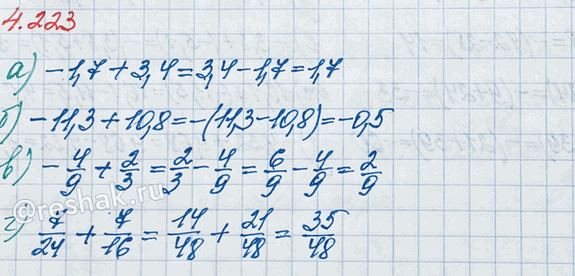 4.223
а) -1,7 + 3,4 = 3,4 - 1,7 = 1,7
б) -11,3 + 10,8 = -(11,3 - 10,8) = -0,5
в) -4/9 + 2/3 = 2/3 - 4/9 = 6/9 - 4/9 = 2/9
г) 7/24 + 7/16 = 14/48 + 21/48 = 35/48
@reshak.ru